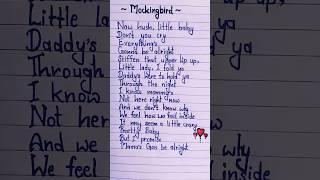 ~ Mockingbird ~
Now hush little baby
Don't you cry
Everything's
Gonna be alright
Stiffen that upper lip up,
Little lady, I told ya
Daddy's here to hold ya
Through the night
I know mommy's
Not here right now
And we don't know why
We feel how we feel inside
It may seem a little crazy
Pretty Baby
But I promise
Mama's Gon be alright
Don't
Every
Gonna
Stiffen that upper lip up,
Little lady, I told ya
Daddy's
Through
I know
Not her
And we
We feel
ya
why
inside